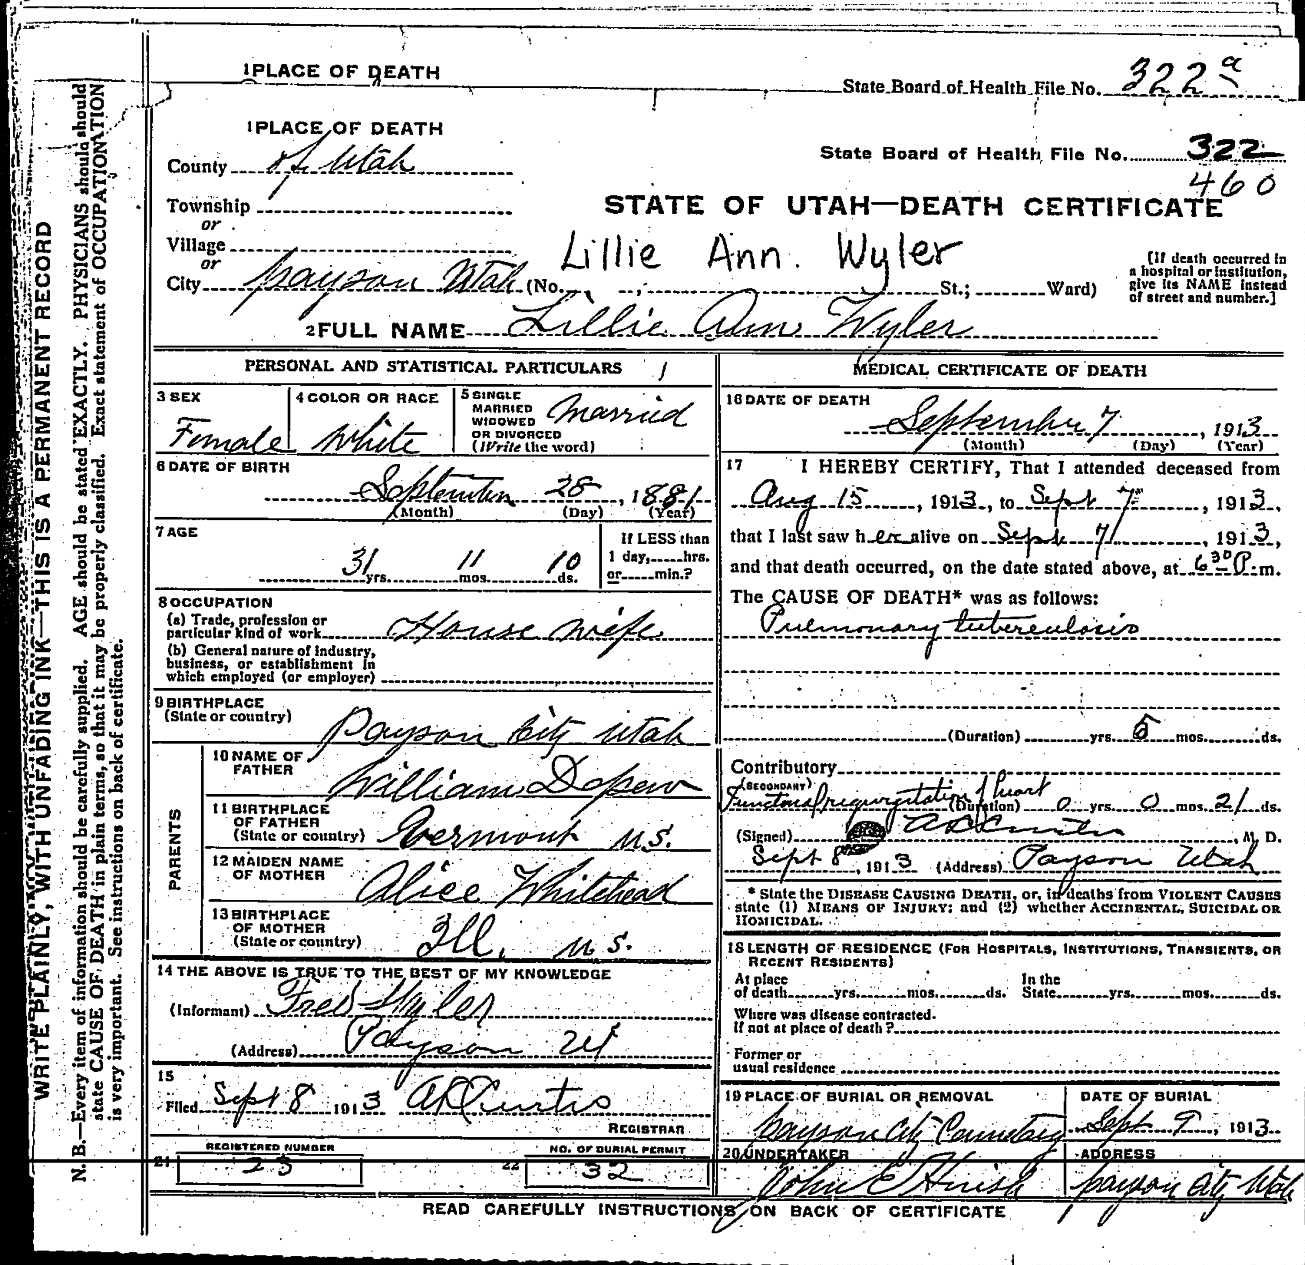 1 PLACE OF DEATH
State Board of Health File No. 322 a
1 PLACE OF DEATH
County of Utah
State Board of Health File No. 322
460
Township
or
Village
or
City Payson Utah (No. , St.; Ward)
STATE OF UTAH—DEATH CERTIFICATE
Lillie Ann. Wyler
[If death occurred in
a hospital or institution,
give its NAME instead
of street and number.]
2 FULL NAME Lillie Ann Wyler
PERSONAL AND STATISTICAL PARTICULARS
3 SEX
Female
4 COLOR OR RACE
White
5 SINGLE
MARRIED
WIDOWED
OR DIVORCED
(Write the word)
Married
6 DATE OF BIRTH
September 28, 1881
(Month) (Day) (Year)
7 AGE
31 yrs. 11 mos. 10 ds.
If LESS than
1 day, hrs.
or min.?
8 OCCUPATION
(a) Trade, profession or
particular kind of work House wife
(b) General nature of industry,
business, or establishment in
which employed (or employer)
9 BIRTHPLACE
(State or country)
Payson City Utah
PARENTS
10 NAME OF
FATHER
William Depew
11 BIRTHPLACE
OF FATHER
(State or country) Vermont U.S.
12 MAIDEN NAME
OF MOTHER
Alice Whitehead
13 BIRTHPLACE
OF MOTHER
(State or country)
Ill. U.S.
14 THE ABOVE IS TRUE TO THE BEST OF MY KNOWLEDGE
(Informant) Fred Wyler
(Address) Payson Ut
15
Filed Sept 8 1913 A L Curtis
REGISTRAR
REGISTERED NUMBER
21 23
NO. OF BURIAL PERMIT
22 32
MEDICAL CERTIFICATE OF DEATH
16 DATE OF DEATH
September 7, 1913
(Month) (Day) (Year)
17 I HEREBY CERTIFY, That I attended deceased from
Aug 15, 1913, to Sept 7", 1913,
that I last saw h er alive on Sept 7, 1913,
and that death occurred, on the date stated above, at 6 30 P. m.
The CAUSE OF DEATH* was as follows:
Pulmonary tuberculosis
(Duration) yrs. 5 mos. ds.
Contributory
(SECONDARY)
Functional regurgitation of heart
(Duration) 0 yrs. 0 mos. 21 ds.
(Signed) M. D.
Sept 8, 1913 (Address) Payson Utah
* State the DISEASE CAUSING DEATH, or, in deaths from VIOLENT CAUSES
state (1) MEANS OF INJURY; and (2) whether ACCIDENTAL, SUICIDAL OR
HOMICIDAL.
18 LENGTH OF RESIDENCE (FOR HOSPITALS, INSTITUTIONS, TRANSIENTS, OR
RECENT RESIDENTS)
At place
of death yrs. mos. ds.
In the
State yrs. mos. ds.
Where was disease contracted.
If not at place of death?
Former or
usual residence
19 PLACE OF BURIAL OR REMOVAL
Payson City Cemetery
DATE OF BURIAL
Sept 9, 1913
20 UNDERTAKER
John E Huish
ADDRESS
Payson City Utah
READ CAREFULLY INSTRUCTIONS ON BACK OF CERTIFICATE
WRITE PLAINLY, WITH UNFADING INK—THIS IS A PERMANENT RECORD
N. B.—Every item of information should be carefully supplied. AGE should be stated EXACTLY. PHYSICIANS should
state CAUSE OF DEATH in plain terms, so that it may be properly classified. Exact statement of OCCUPATION
is very important. See instructions on back of certificate.